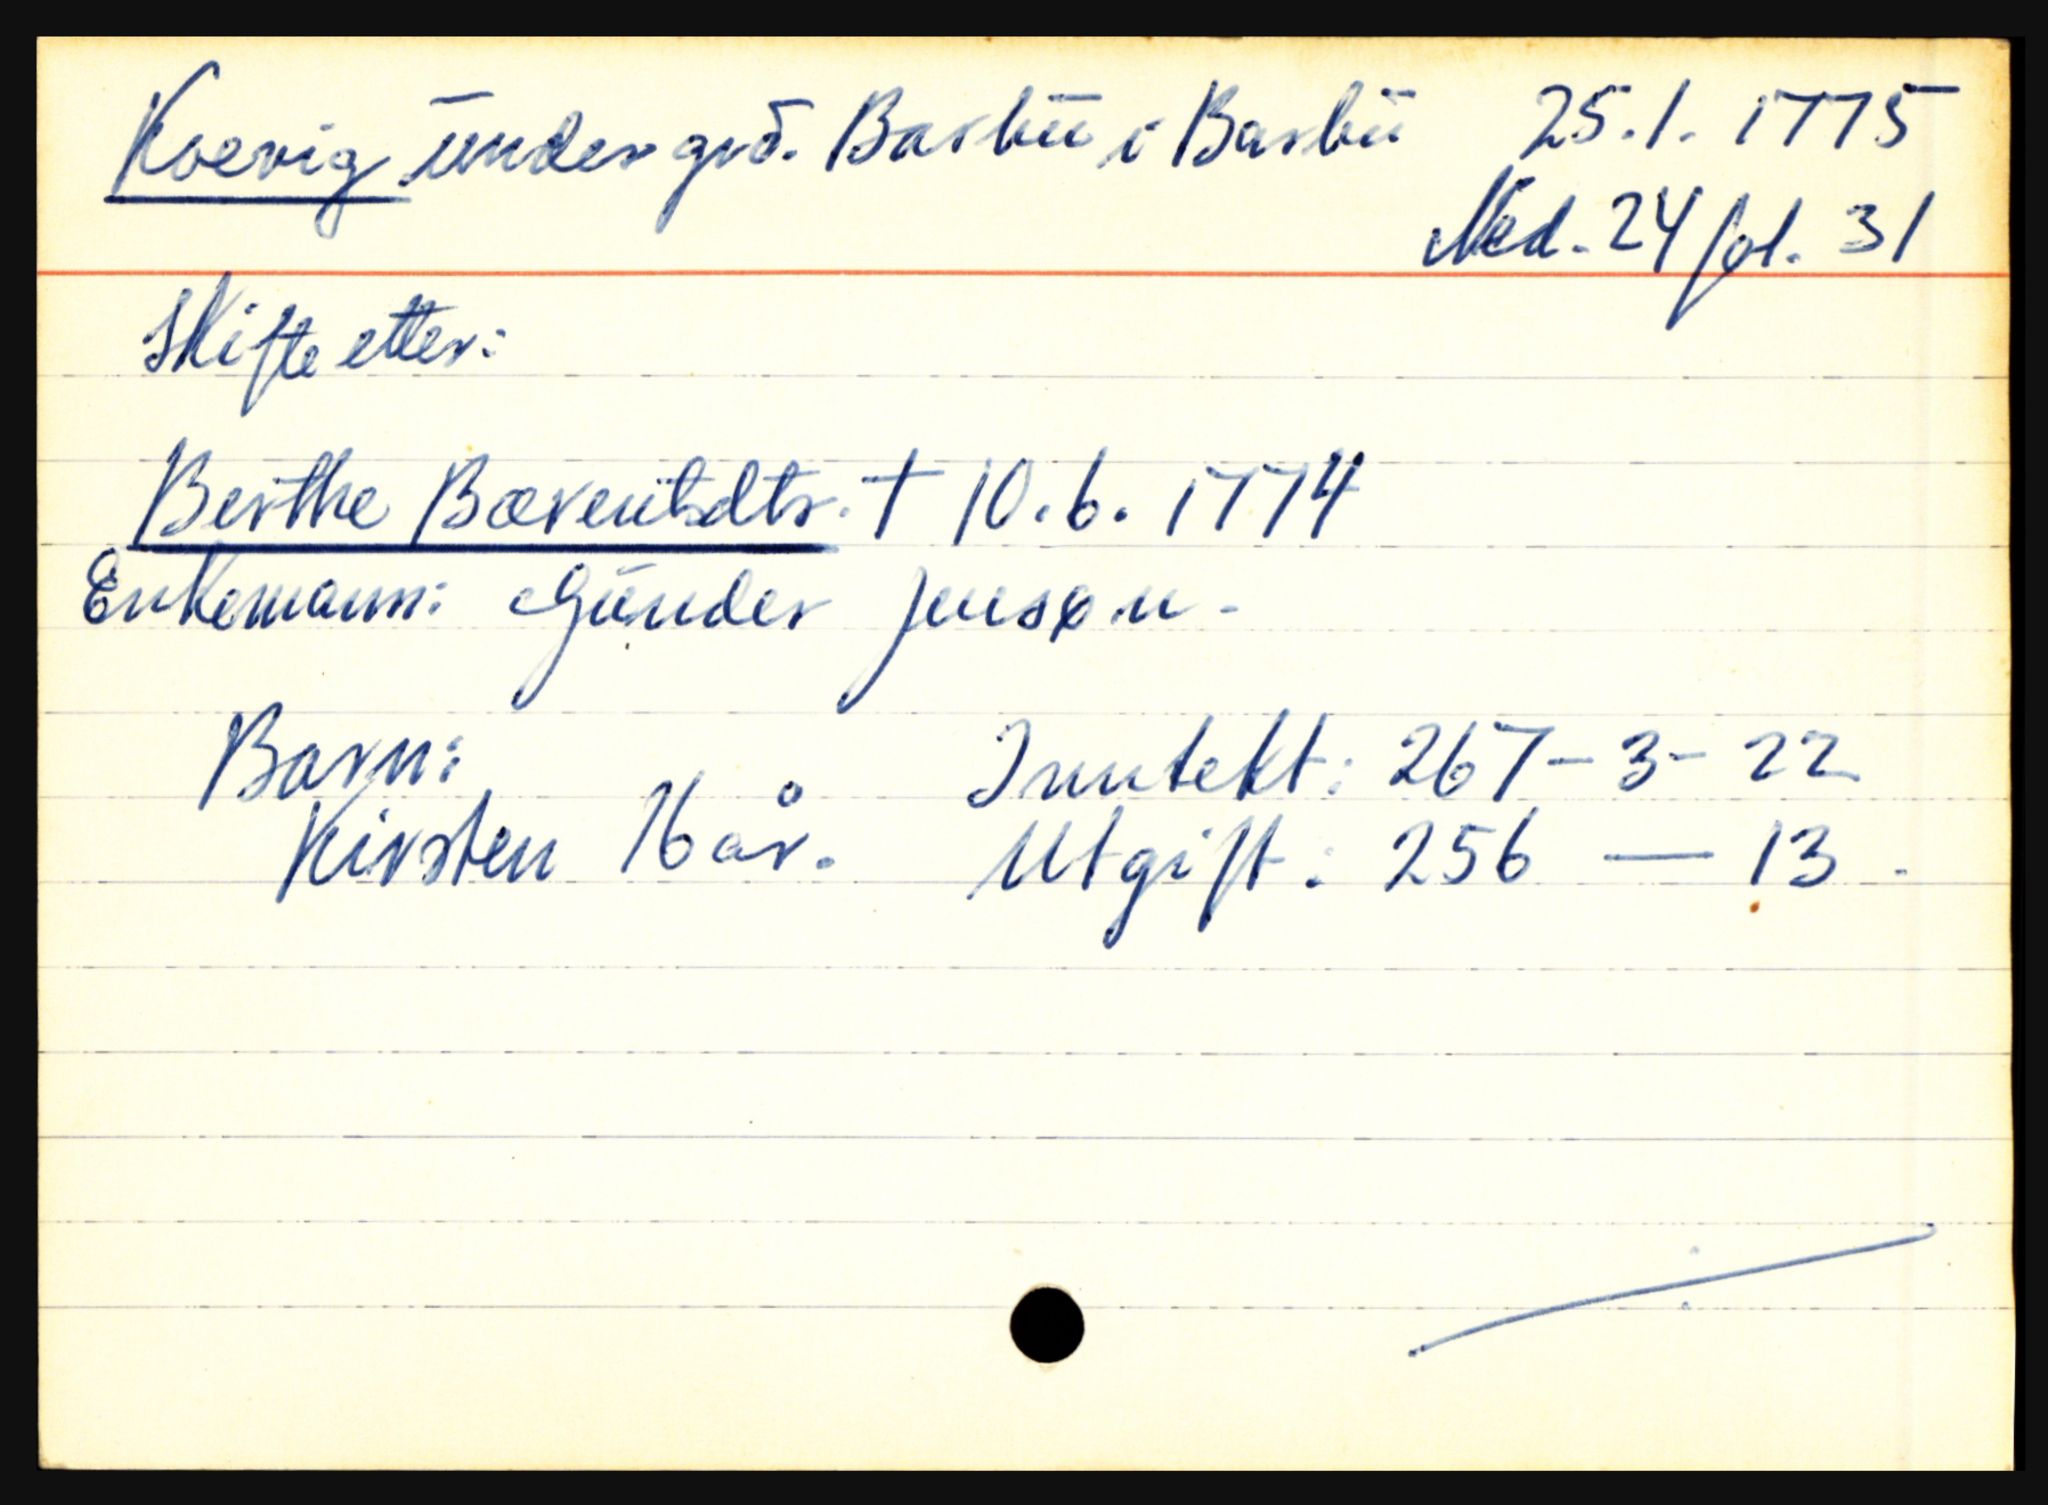 Kvevig under grd. Barbu i Barbu 25.1.1775
Ned. 24 fol. 31
Skifte etter:
Berthe Bærentsdtr. † 10.6.1774
Enkemann: Gunder Jensøn.
Barn: Inntekt: 267-3-22
Kirsten 16 år. Utgift: 256 — 13.